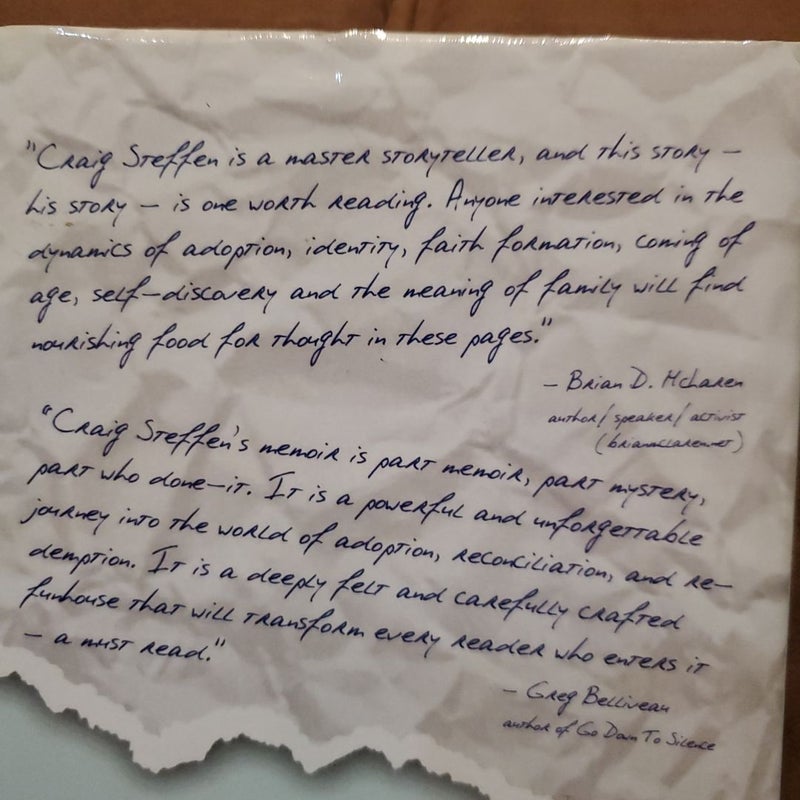 "Craig Steffen is a master storyteller, and this story –
his story – is one worth reading. Anyone interested in the
dynamics of adoption, identity, faith formation, coming of
age, self-discovery and the meaning of family will find
nourishing food for thought in these pages."
– Brian D. McLaren
author/ speaker/ activist
(brianmclaren.net)
"Craig Steffen's memoir is part memoir, part mystery,
part who done-it. It is a powerful and unforgettable
journey into the world of adoption, reconciliation, and re-
demption. It is a deeply felt and carefully crafted
funhouse that will transform every reader who enters it
– a must read."
– Greg Belliveau
author of Go Down To Silence